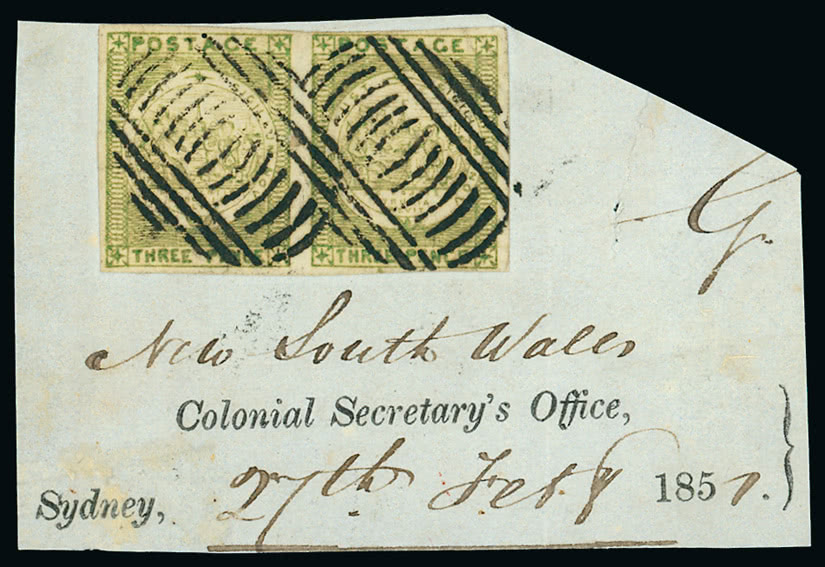 POSTAGE POSTAGE
THREE PENCE THREE PENCE
New South Wales
Colonial Secretary's Office,
Sydney, 27th Feby 1851.